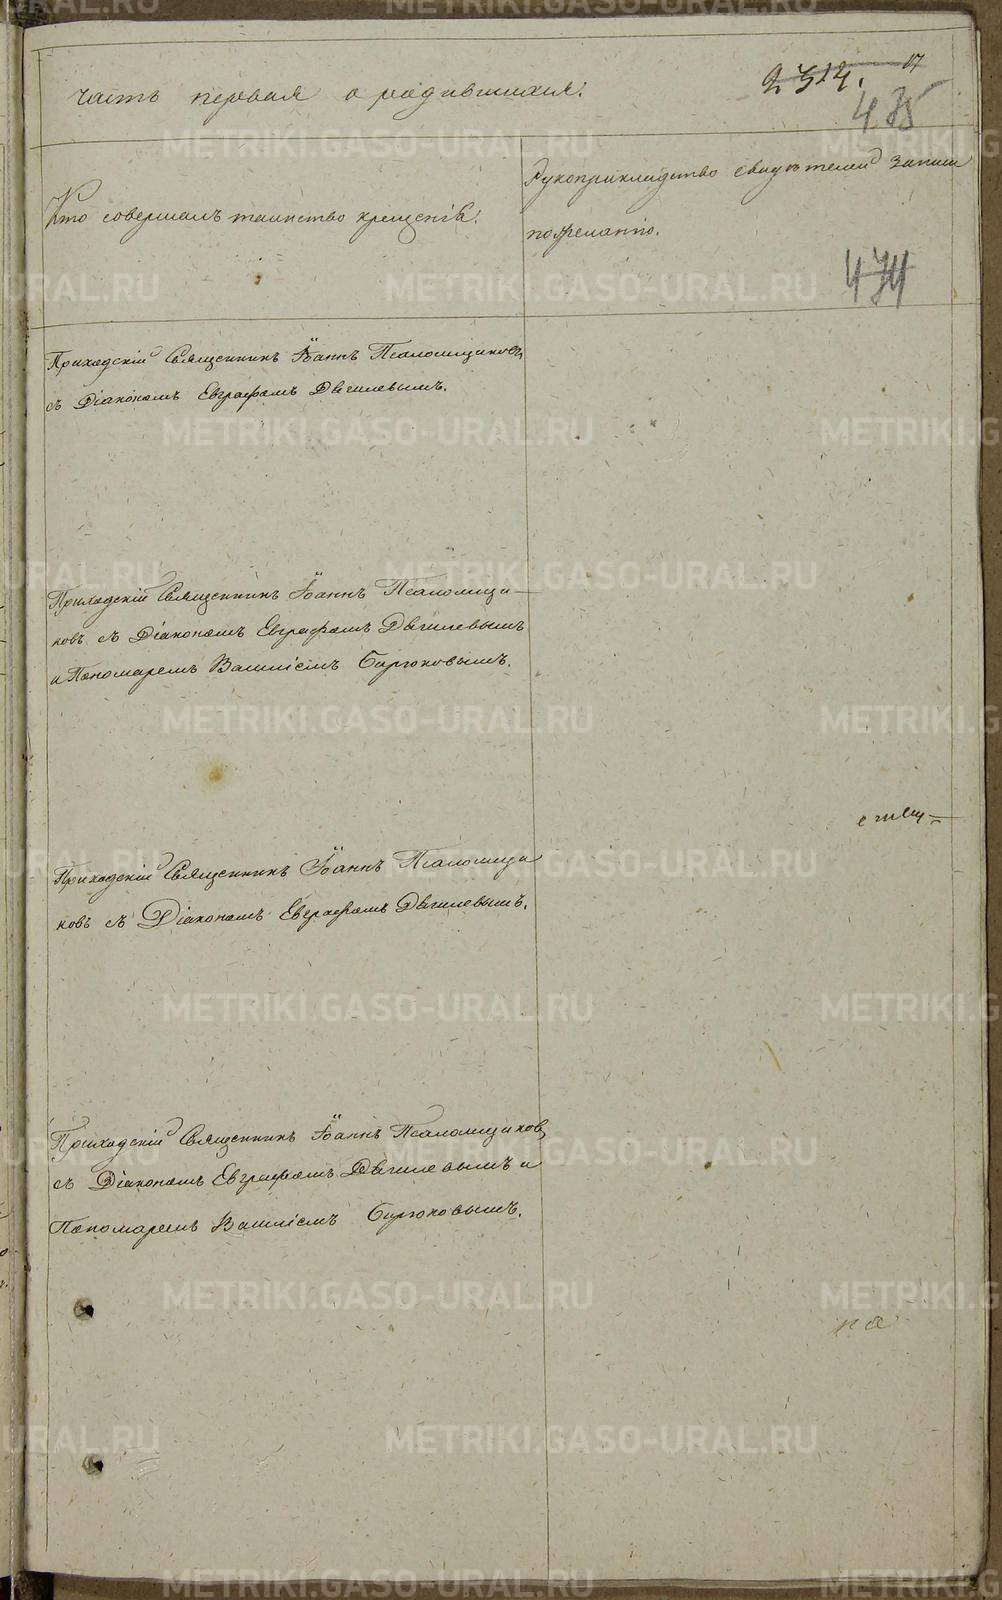 часть первая о родившихся.
2312. 17
475
Кто совершалъ таинство крещенія.
Рукоприкладство свидѣтелей записи
по желанію.
474
Приходскій Священникъ Іоаннъ Псаломщиковъ
съ Діакономъ Евграфомъ Дягилевымъ.
Приходскій Священникъ Іоаннъ Псаломщи-
ковъ съ Діакономъ Евграфомъ Дягилевымъ
и Пономаремъ Василіемъ Бирюковымъ.
Приходскій Священникъ Іоаннъ Псаломщи
ковъ съ Діакономъ Евграфомъ Дягилевымъ.
Приходскій Священникъ Іоаннъ Псаломщиковъ
съ Діакономъ Евграфомъ Дягилевымъ и
Пономаремъ Василіемъ Бирюковымъ.
METRIKI.GASO-URAL.RU